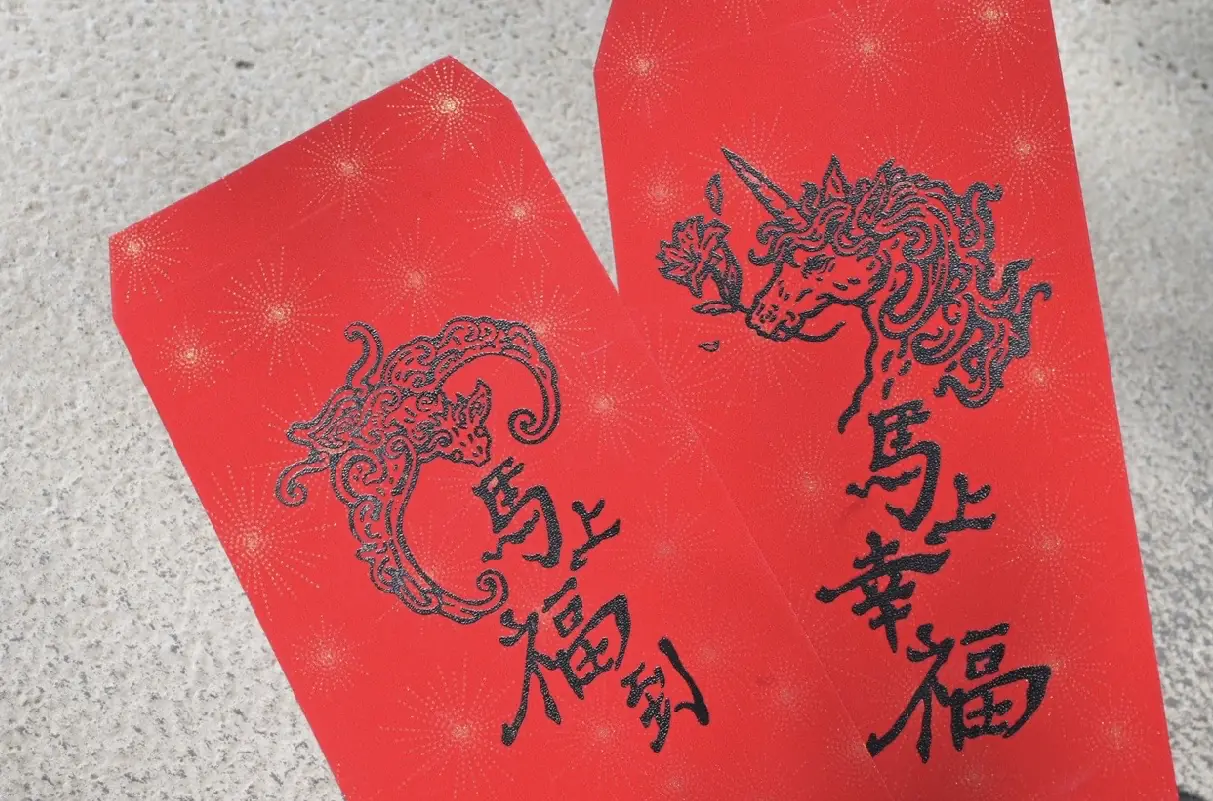 馬上福到
馬上幸福